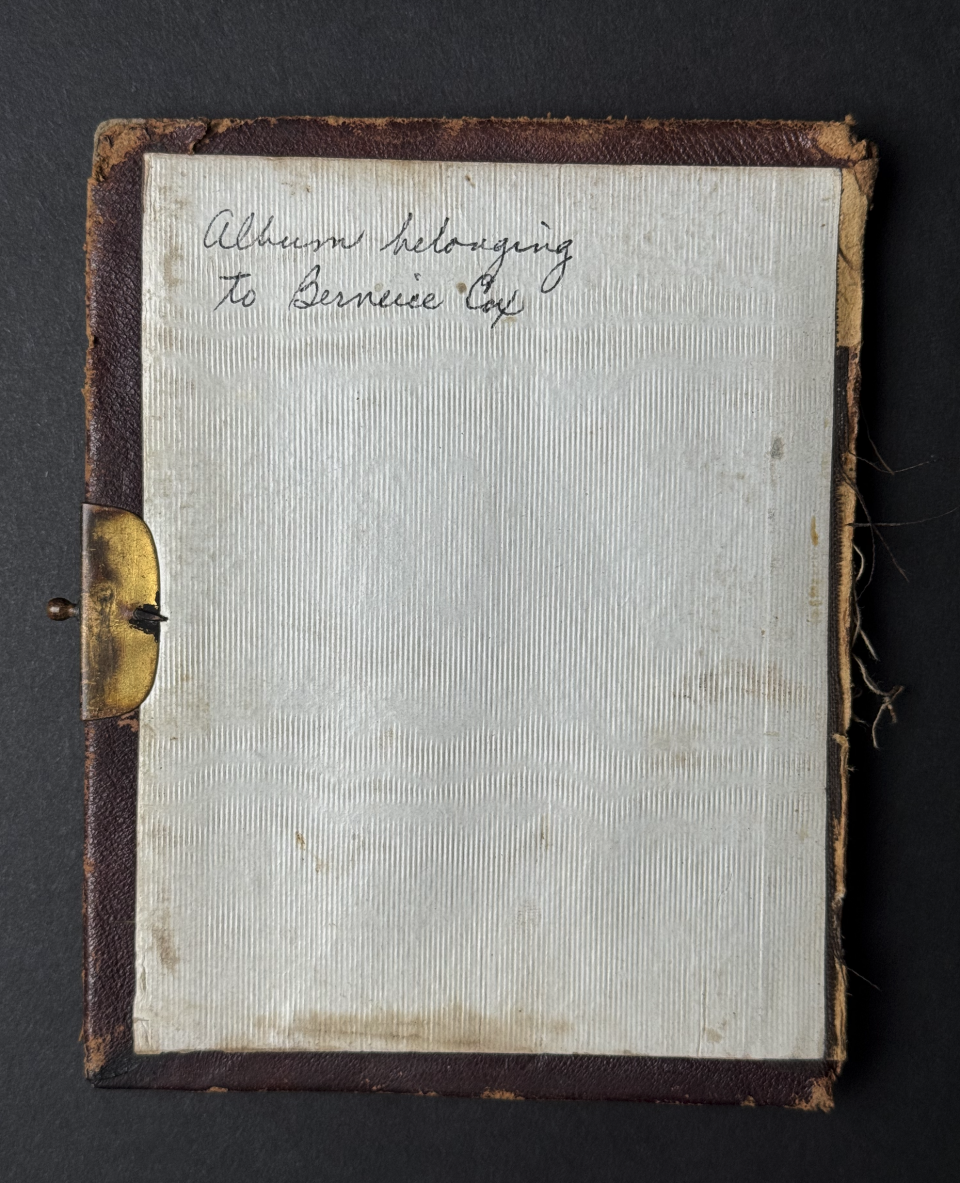 Album belonging
to Berneice Cox